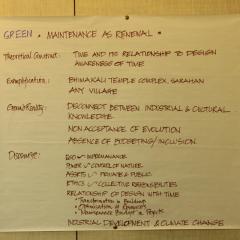 GREEN • MAINTENANCE AS RENEWAL •
Theoretical Construct: TIME AND ITS RELATIONSHIP TO DESIGN
AWARENESS OF TIME
Exemplification: BHIMAKALI TEMPLE COMPLEX, SARAHAN
ANY VILLAGE
Ground Reality: DISCONNECT BETWEEN INDUSTRIAL & CULTURAL
KNOWLEDGE
NON ACCEPTANCE OF EVOLUTION
ABSENCE OF BUDGETING/INCLUSION
Discourse: EGO IMPERMANANCE
POWER POWER OF NATURE
ASSETS PRIVATE & PUBLIC
ETHICS COLLECTIVE RESPONSIBILITIES
RELATIONSHIP OF DESIGN WITH TIME
• Transformation in Buildings
• Optimisation of Resources
• Maintenance Budget in Projects
INDUSTRIAL DEVELOPMENT & CLIMATE CHANGE